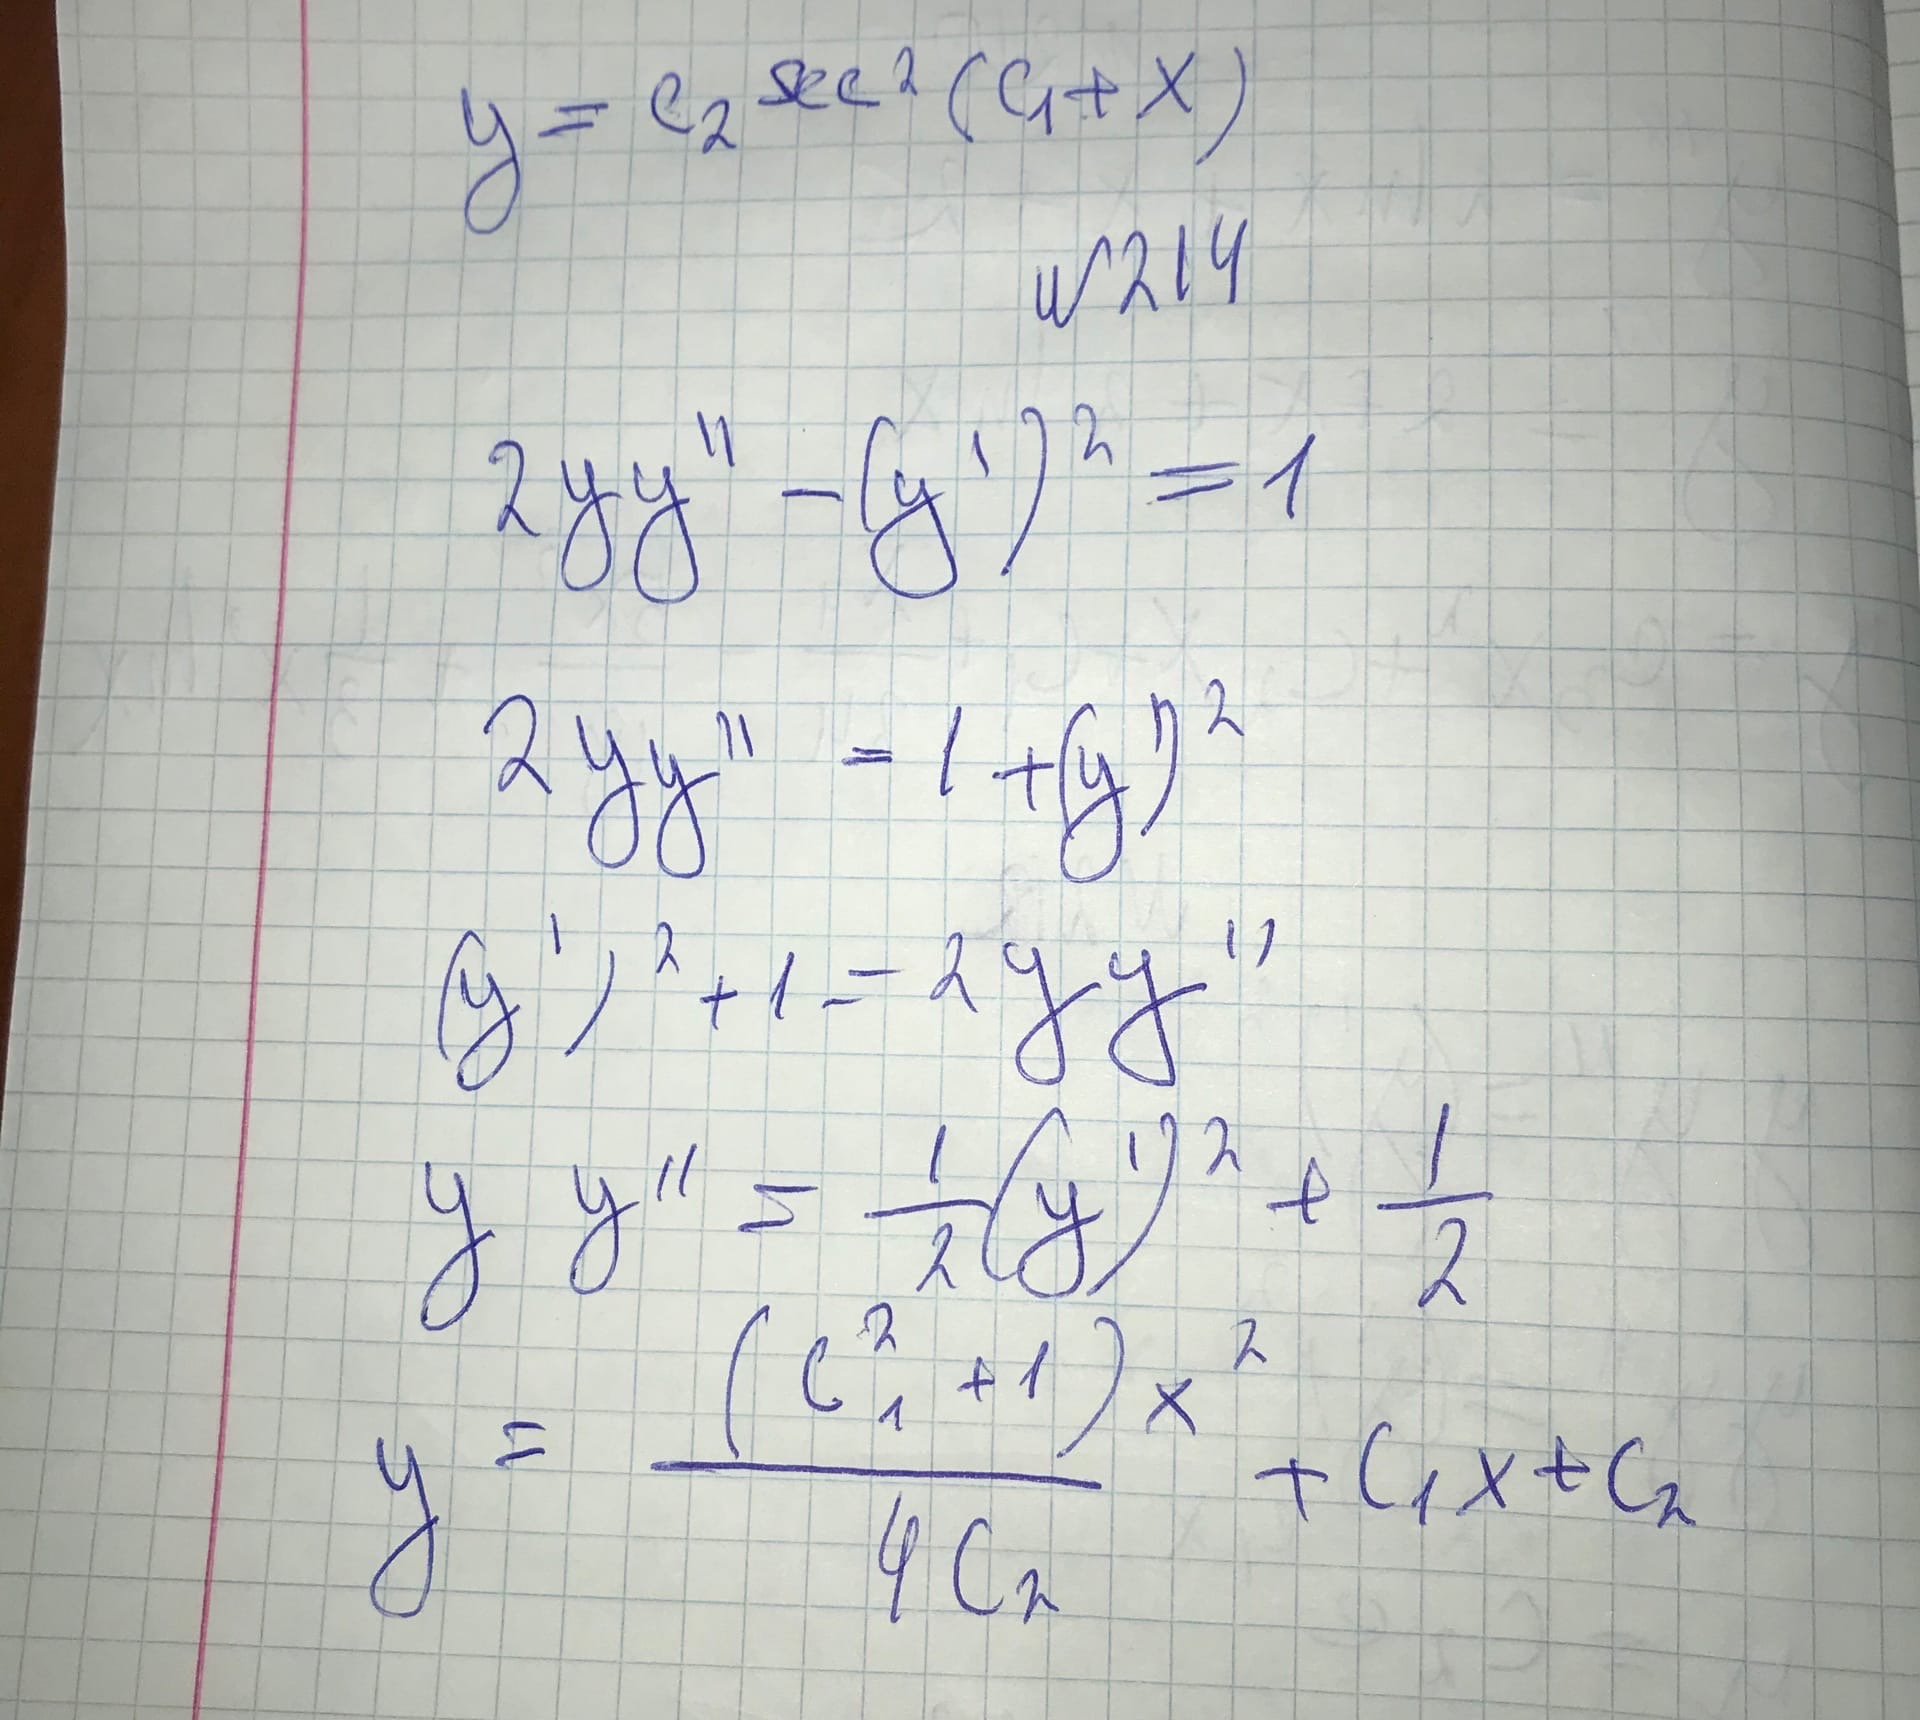 y = c₂ sec² (c₁ + x)
№214
2yy'' - (y')² = 1
2yy'' = 1 + (y')²
(y')² + 1 = 2yy''
y y'' = 1/2 (y')² + 1/2
y = (c₁² + 1)x² / 4c₂ + c₁x + c₂